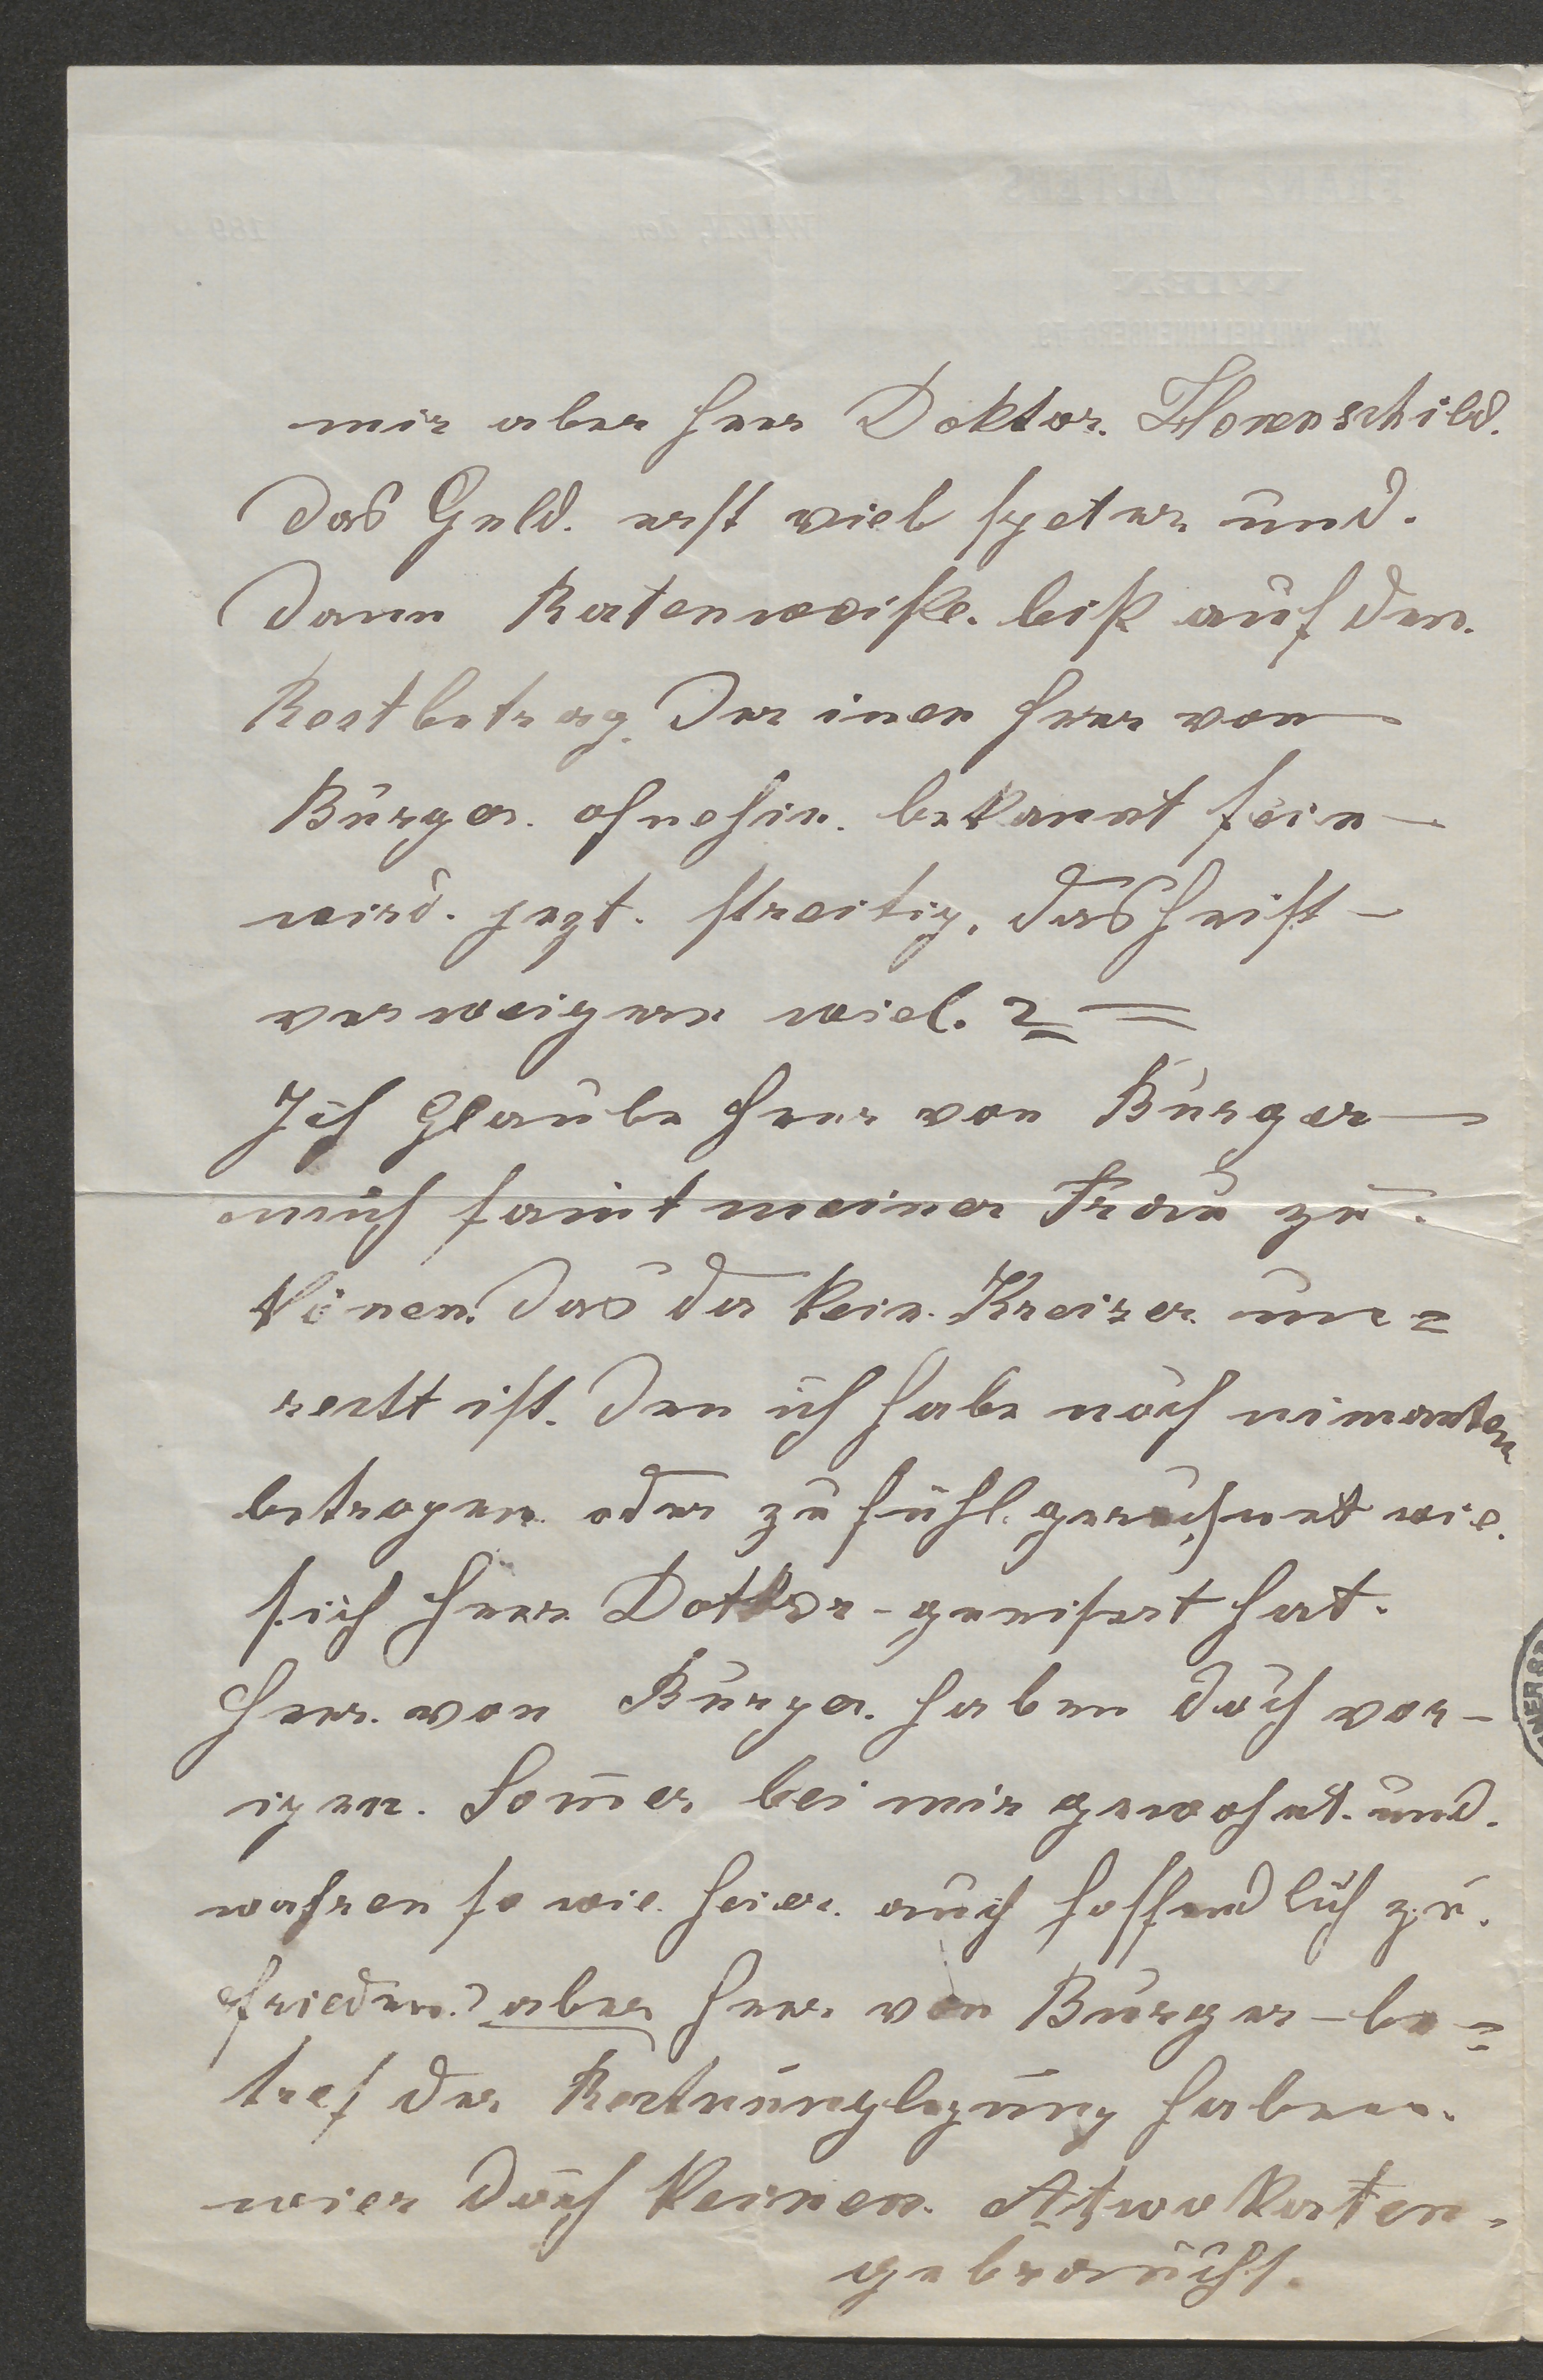 mir aber Herr Doktor. Hornschild.
das Geld. erst viel speter und.
dann Ratenweiße. biß auf den.
Restbetrag. der inen Herr von
Burger. ohnehin. bekannt sein
wird. jezt. streitig. das heist
verweigern wiel. ? =
Ich Glaube Herr von Burger
mich samt meiner Frau zu.
könen. das da kein. Kreizer un=
recht ist. den ich habe noch nimanten
betrogen. oder zu fühl. gerechnet wie.
sich Herr Dokktor - geeisert hat.
Herr. von Burger. haben doch vor-
igen. Som̅er bei mir gewohnt. und.
wahren so wie. heier. auch hoffendlich zu.
frieden.? aber Herr. von Burger - be=
tref der Rechnunglegung haben.
wier doch keinen. Atwokaten.
gebraucht.
FRANZ
WIEN, den 189
WIEN
XVI., WILHELMINENBERG 73.